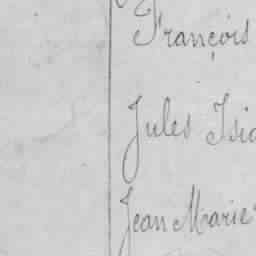 François
Jules Isid
Jean Marie